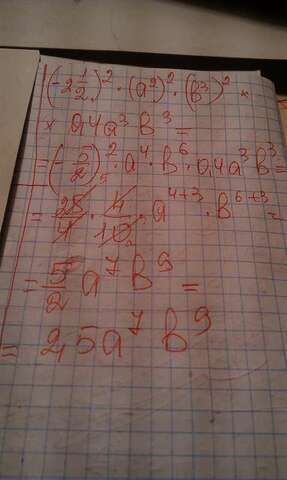 (-2 1/2)² · (a²)² · (b³)² ×
× 0,4a³b³ =
= (-5/2)² · a⁴ · b⁶ · 0,4a³b³ =
= 25/4 · 4/10 · a⁴⁺³ · b⁶⁺³ =
= 5/2 a⁷b⁹ =
= 2,5a⁷b⁹